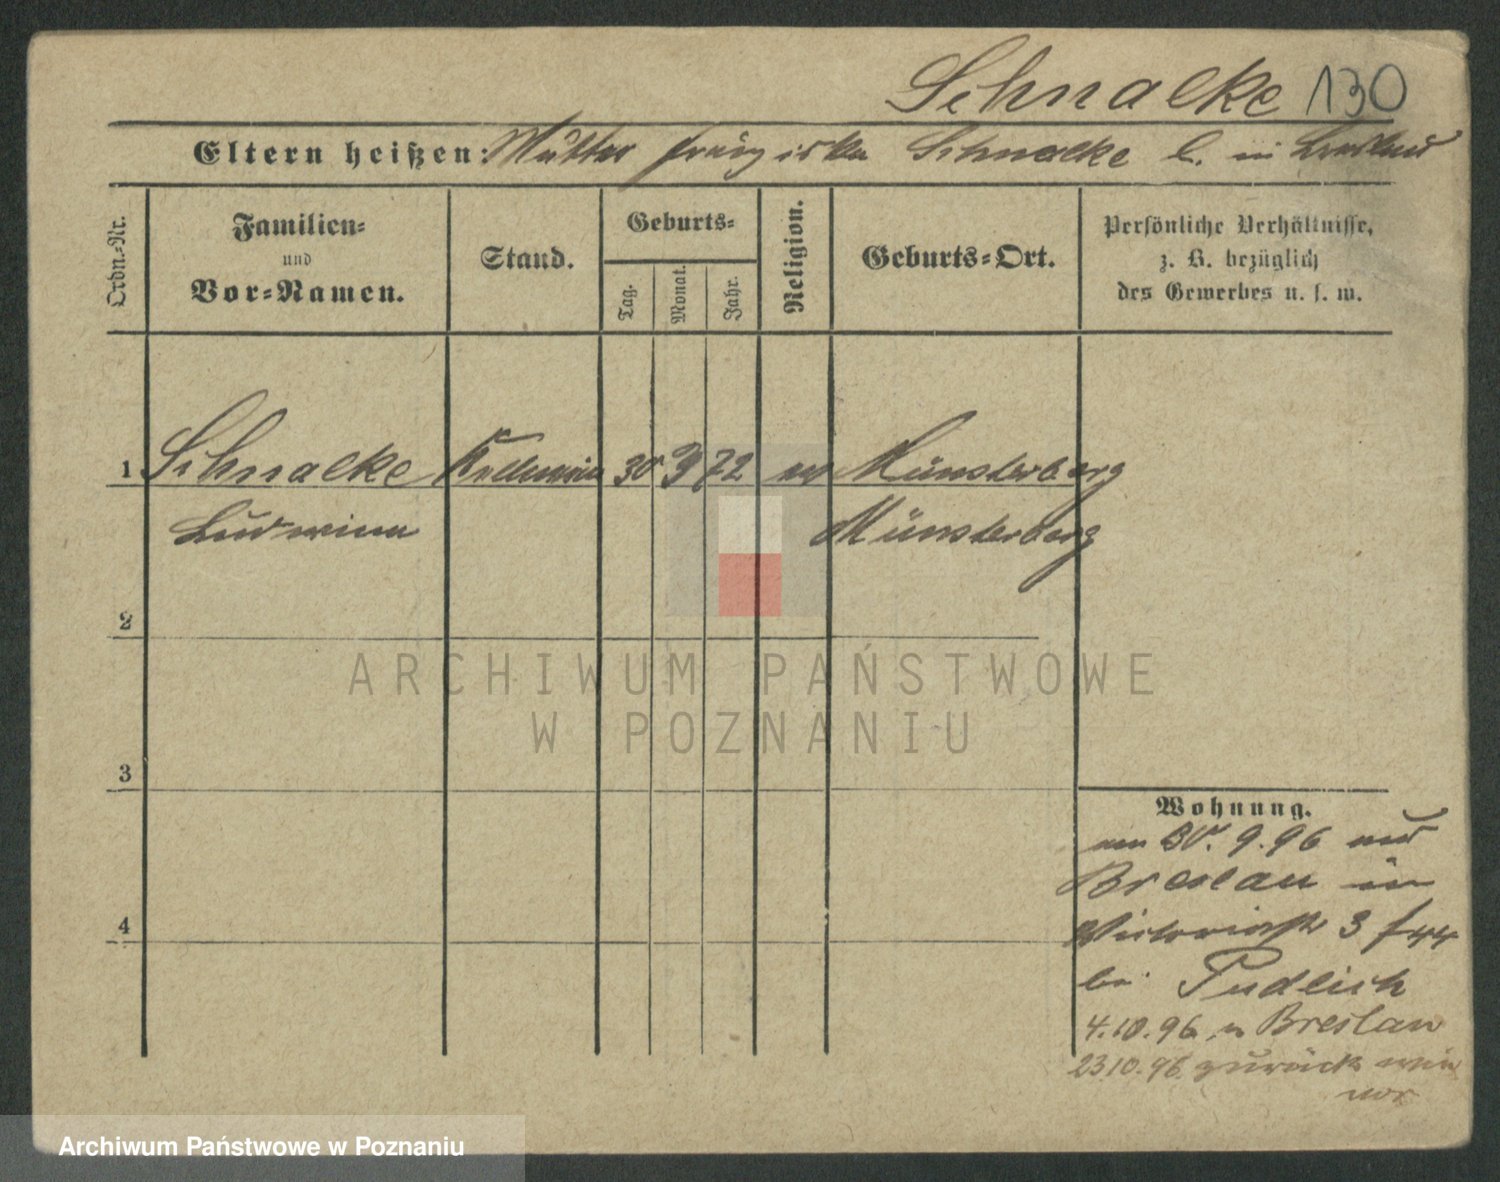 Schnalke 130
Eltern heißen: Mutter Franziska Schnalke l. in Breslau
Ordn.-Nr.
Familien- und Vor-Namen.
Stand.
Geburts-
Tag.
Monat.
Jahr.
Religion.
Geburts-Ort.
Persönliche Verhältnisse,
z. B. bezüglich
des Gewerbes u. s. w.
1 Schnalke Kellnerin 30 9 72 Münsterberg
Ludwina Münsterberg
2
3
4
Wohnung.
am 30. 9. 96 aus
Breslau in
Victoriastr 3
bei Pudlich
4.10.96 n Breslau
23.10.96 zurück wie
vor
ARCHIWUM PAŃSTWOWE
W POZNANIU
Archiwum Państwowe w Poznaniu